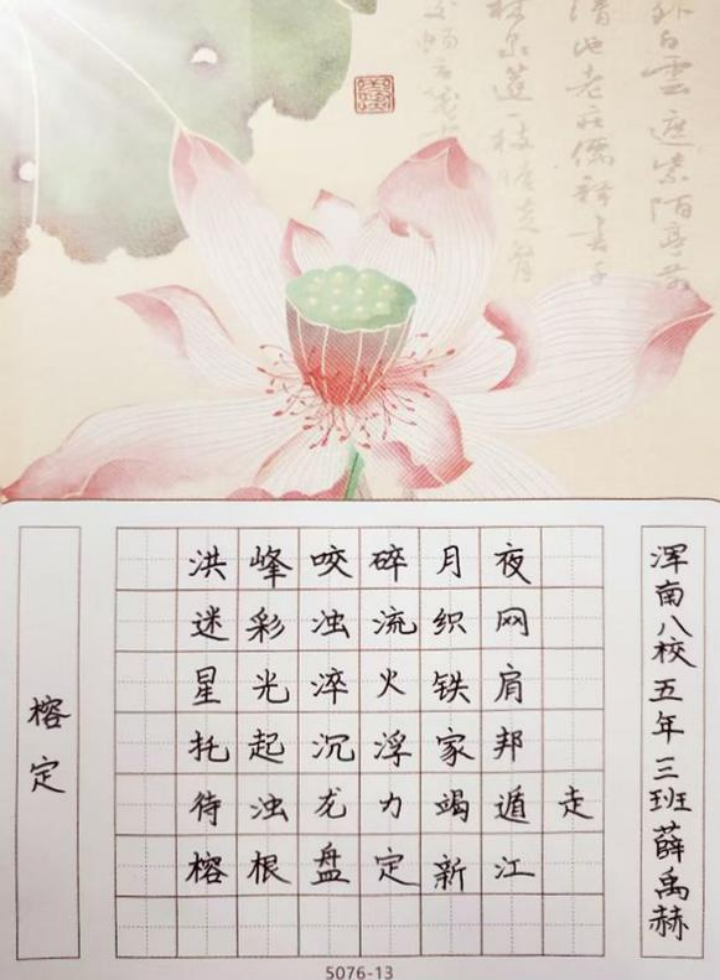 白雲遮紫陌
池老莊儒釋書
榕定
洪峰咬碎月夜
迷彩浊流织网
星光淬火铁肩
托起沉浮家邦
待浊龙力竭遁走
榕根盘定新江
浑南八校五年三班薛禹赫
5076-13